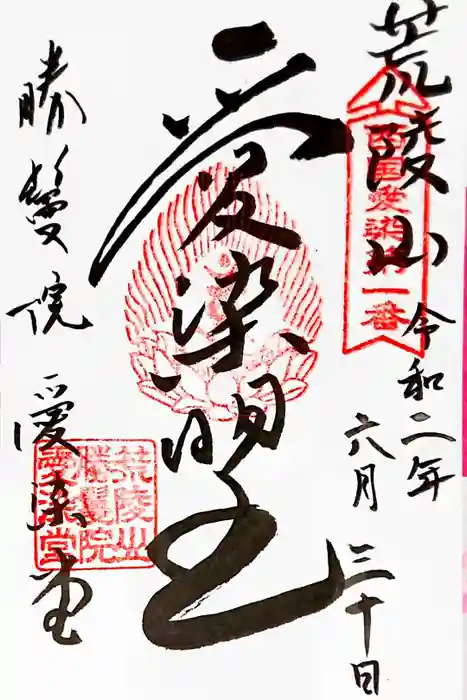 荒陵山
西国愛染第一番
令和二年
六月三十日
愛染明王
勝鬘院愛染堂
荒陵山
勝鬘院
愛染堂